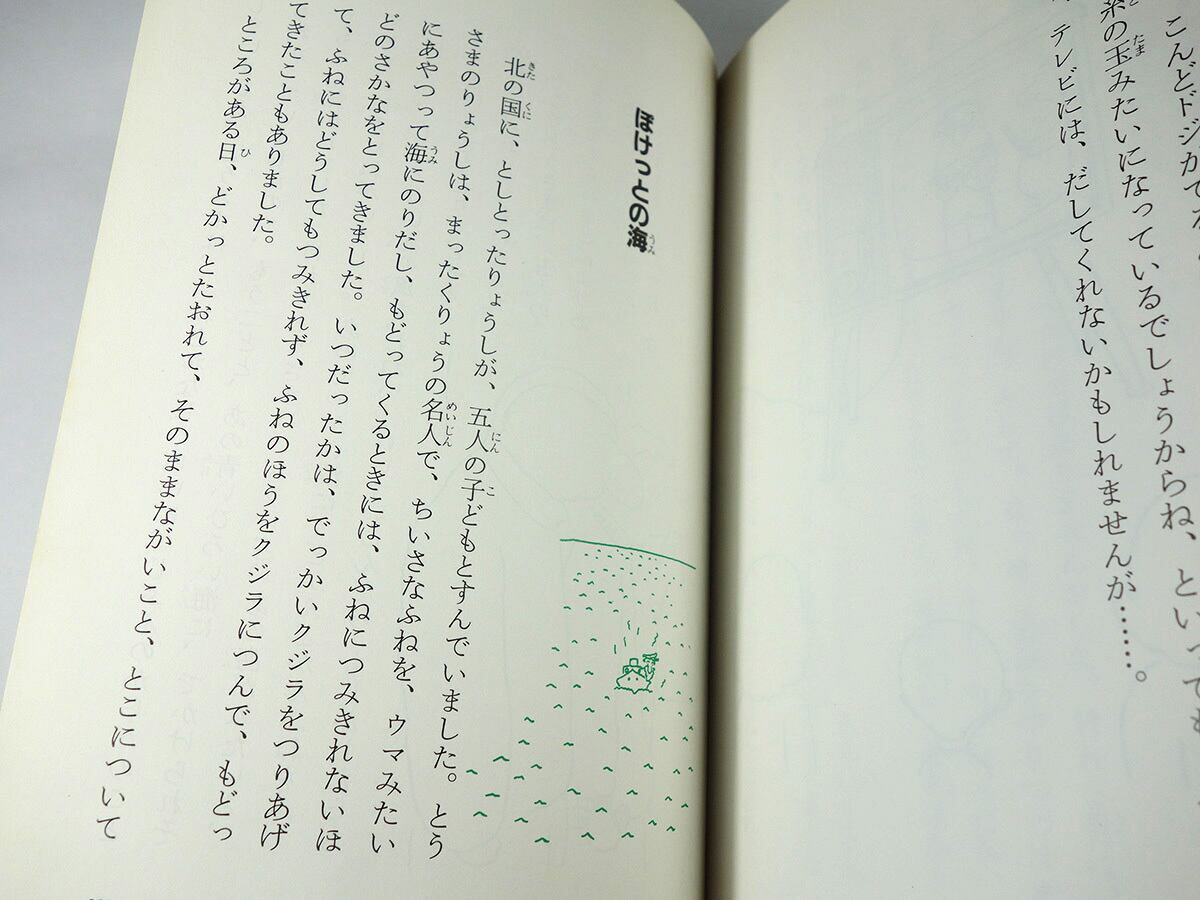 こんどドジが
の玉みたいになっているでしょうからね、といっても
テレビには、だしてくれないかもしれませんが……。
ぽけっとの海
北の国に、としとったりょうしが、五人の子どもとすんでいました。とう
さまのりょうしは、まったくりょうの名人で、ちいさなふねを、ウマみたい
にあやつって海にのりだし、もどってくるときには、ふねにつみきれないほ
どのさかなをとってきました。いつだったかは、でっかいクジラをつりあげ
て、ふねにはどうしてもつみきれず、ふねのほうをクジラにつんで、もどっ
てきたこともありました。
ところがある日、どかっとたおれて、そのままながいこと、とこについて